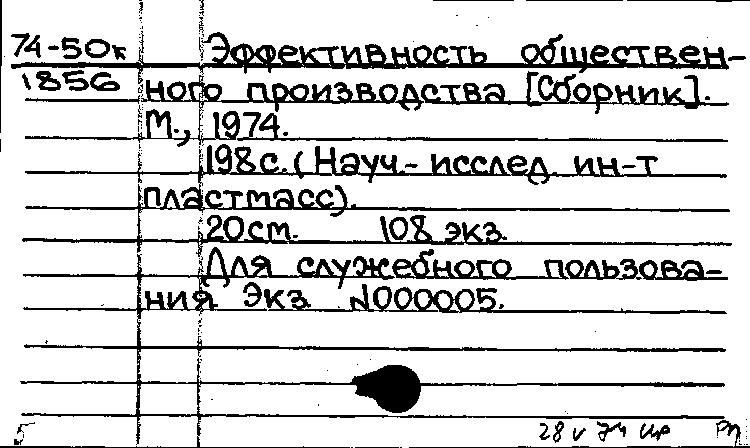 74-50к Эффективность обществен-
1856 ного производства [Сборник].
М., 1974.
198с. (Науч.- исслед. ин-т
пластмасс).
20см. 108 экз.
Для служебного пользова-
ния Экз. №000005.
5 28 V 74